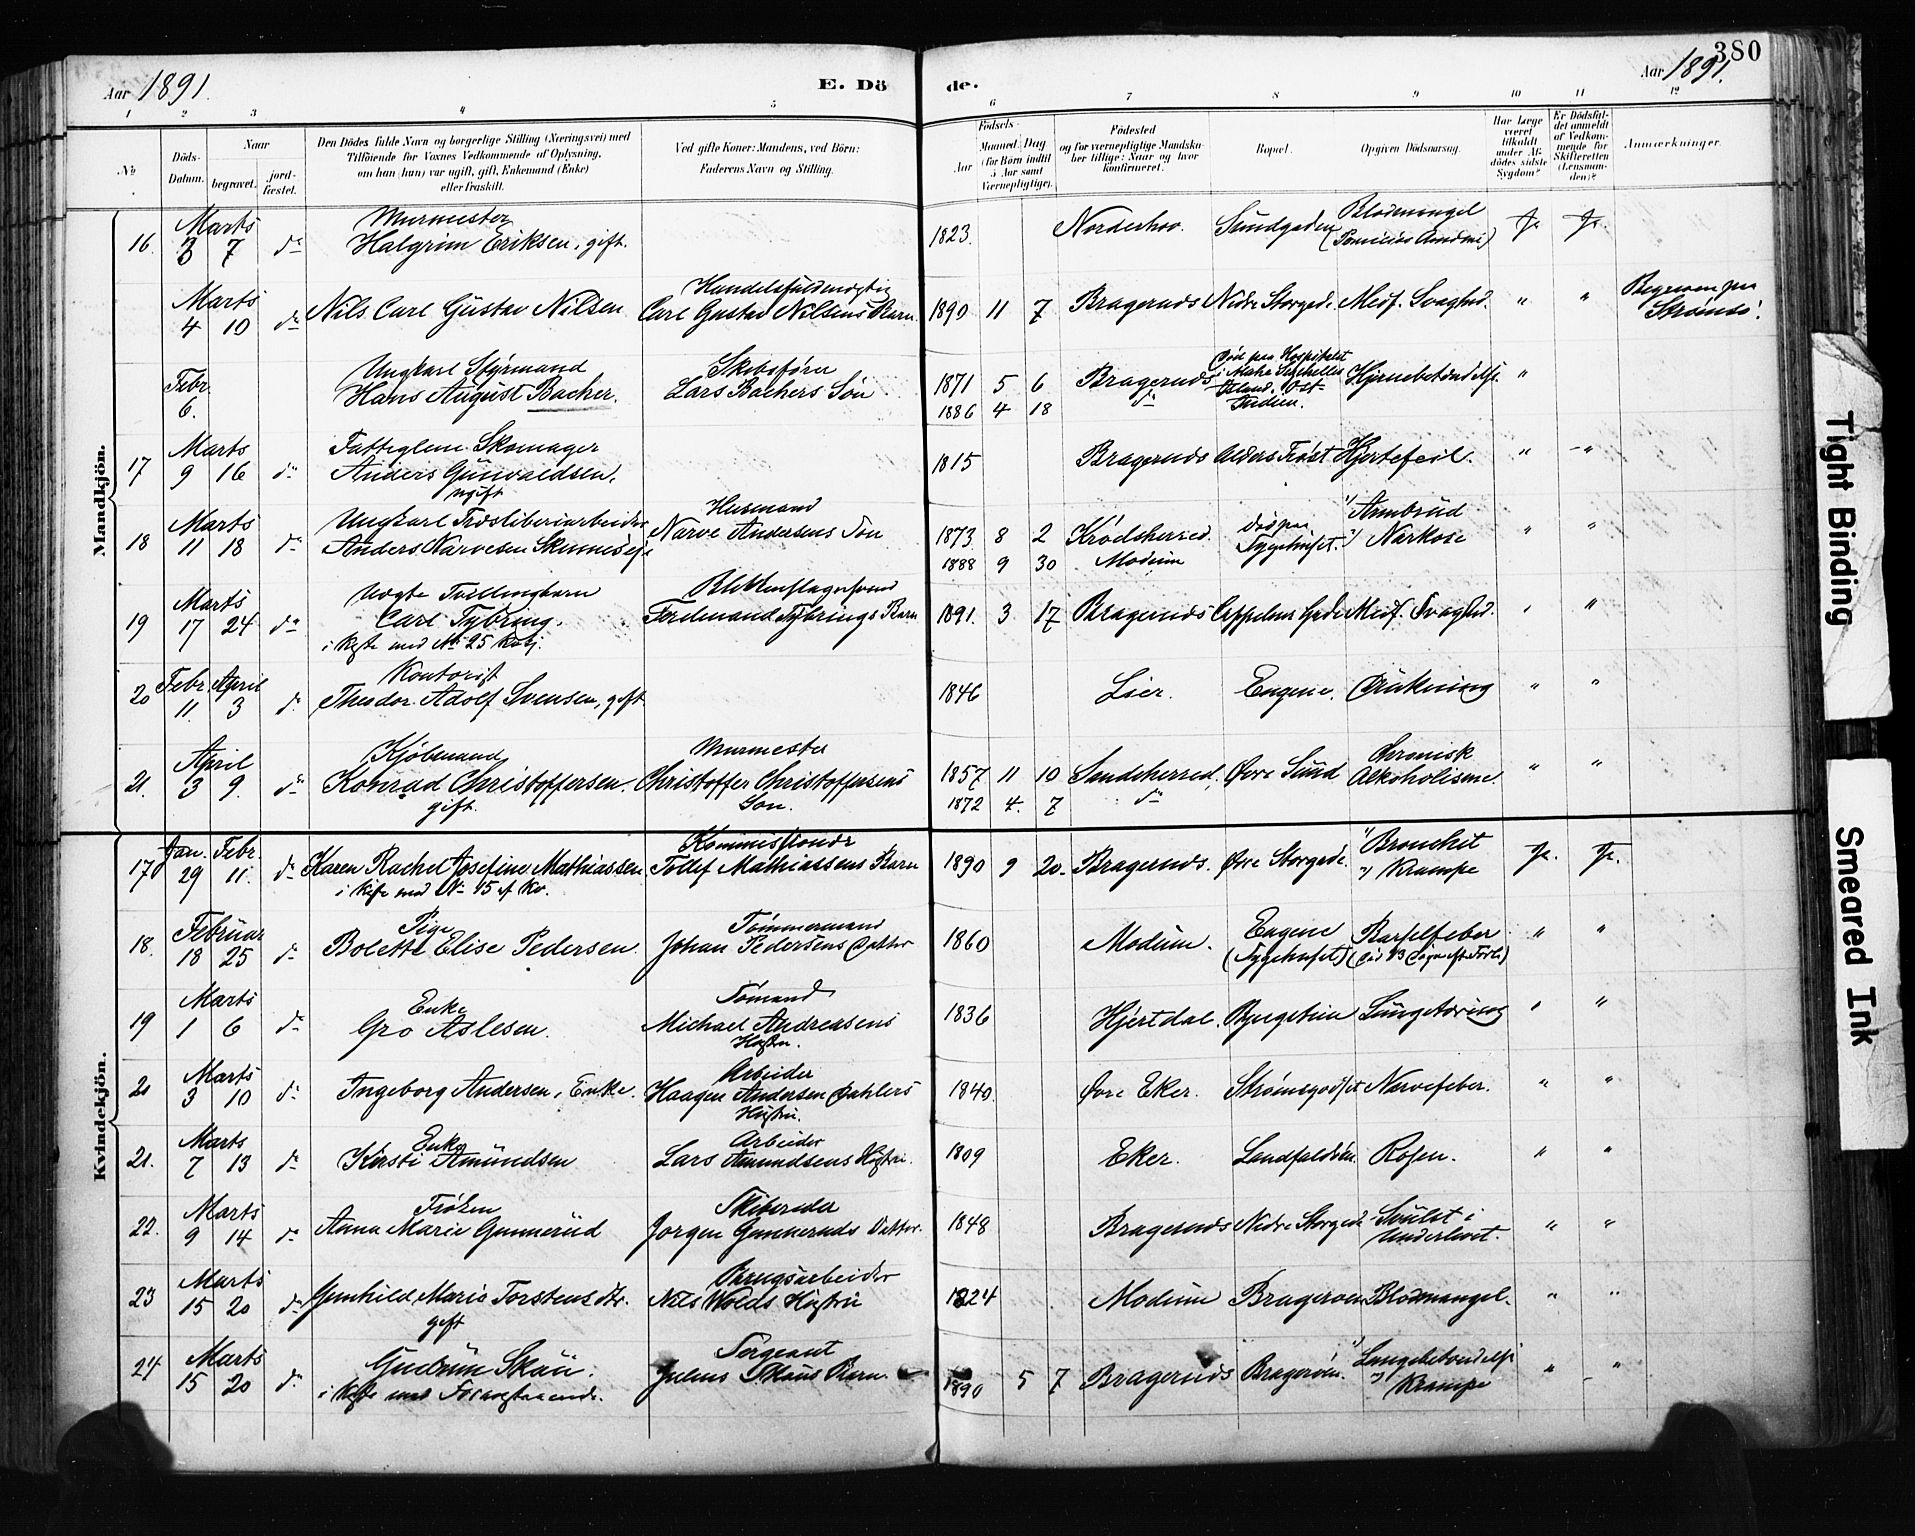 380
Aar 1891. E. Dö de. Aar 1891.
1 2 3 4 5 6 7 8 9 10 11 12
No. Döds-Datum. Naar begravet. jord-fæstet. Den Dödes fulde Navn og borgerlige Stilling (Næringsvei) med Tilföiende for Voxnes Vedkommende af Oplysning, om han (hun) var ugift, gift, Enkemand (Enke) eller fraskilt. Ved gifte Koner: Mandens, ved Börn: Faderens Navn og Stilling. Födsels- Aar Maaned Dag (for Börn indtil 5 Aar samt Værnepligtige). Födested og for værnepligtige Mandskaber tillige: Naar og hvor konfirmeret. Bopæl. Opgiven Dödsaarsag. Har Læge været tilkaldt under Afdödes sidste Sygdom? Er Dödsfaldet anmeldt af Vedkommende for Skifteretten (Lensmanden)? Anmærkninger.
Mandkjön.
16 Marts 3 7 do Murmester Halgrim Eriksen, gift. 1823. Norderhov. Sundgaden Blodmangel (Pernicios Anæmi) Ja Ja.
Marts 4 10 do Nils Carl Gustav Nilsen Handelsfuldmægtig Carl Gustav Nilsens Barn 1890 11 7 Bragernæs Nedre Storgade. Medf. Svaghed. " " Begraven paa Strømsö.
Febr. 6. Ungkarl Styrmand Hans August Bacher. Skibsfører Lars Bachers Søn 1871 5 6 Bragernæs Död paa Hospitalet i Mahe Seychelles Ost-Indien. Hjernebetændelse "
1886 4 18 do
17 Marts 9 16 do Fattiglem Skomager Anders Gunvaldsen, ugift 1815 Bragernæs Alders Trøst Hjertefeil. " "
18 Marts 11 18 do Ungkarl Træsliberiarbeider Anders Narvesen Husmand Narve Andersens Søn 1873 8 2 Krødsherred. död paa Sygehuset. Armbrud Narkose " "
1888 9 30 Modum
19 Marts 17 24 do Uægte Tvillingbarn Carl Tybring. i Kiste med No 25 Kvkj. Blikkenslagersvend Ferdinand Tybrings Barn 1891. 3 17 Bragernæs Appelens Gade Medf. Svaghed. " "
20 Febr. 11. April 3 do Kontorist Theodor Adolf Svensen, gift. 1846 Lier. Engene. Drukning " "
21. April 3 9. do Kjøbmand Konrad Christoffersen. gift. Murmester Christoffer Christoffersens Søn. 1857 11 10 Sandeherred. Øvre Sund Chronisk Alkoholisme. " "
1872 4. 7 do
Kvindekjön.
17 Jan. 29 Febr. 11. do Karen Rachel Josefine Mathiassen i Kiste med No 15 af Kv. Kommissionær Tollef Mathiassens Barn 1890 9 20 Bragernæs. Øvre Storgade. Bronchit Krampe Ja. Ja.
18. Februar 18 25 do Pige Bolette Elise Pedersen. Tømmermand Johan Pedersens Datter 1860 Modum. Engene (Sygehuset) Barselfeber " "
19 Marts 1 6 do Enke Gro Aslesen. Sømand Michael Andreasens Hustru. 1836 Hjertdal. Lungetæring " "
20 Marts 3 10 do Ingeborg Andersen, Enke. Arbeider Haagen Andersen Dahlers Hustru. 1840. Øvre Eker. Strømsgodset Nervefeber. " "
21. Marts 7 13 do Enke Kirsti Amundsen Arbeider Lars Amundsens Hustru. 1809 Eker. Landfaldøen Rosen. " "
22. Marts 9 14 do Frøken Anna Marie Gunnerud Skibsreder Jørgen Gunneruds Datter. 1848 Bragernæs Nedre Storgade Svulst i Underlivet. " "
23 Marts 15 20 do Gunhild Marie Torstensdtr. gift Brugsarbeider Nils Wolds Hustru 1824 Modum Bragerøen Blodmangel. " "
24 Marts 15 20 do Gudrun Skau. i Kiste med Foregaaende. Sergeant Julius Skaus Barn 1890 5 7 Bragernæs Bragerøen. Lungebetændelse Krampe " "
Tight Binding
Smeared Ink